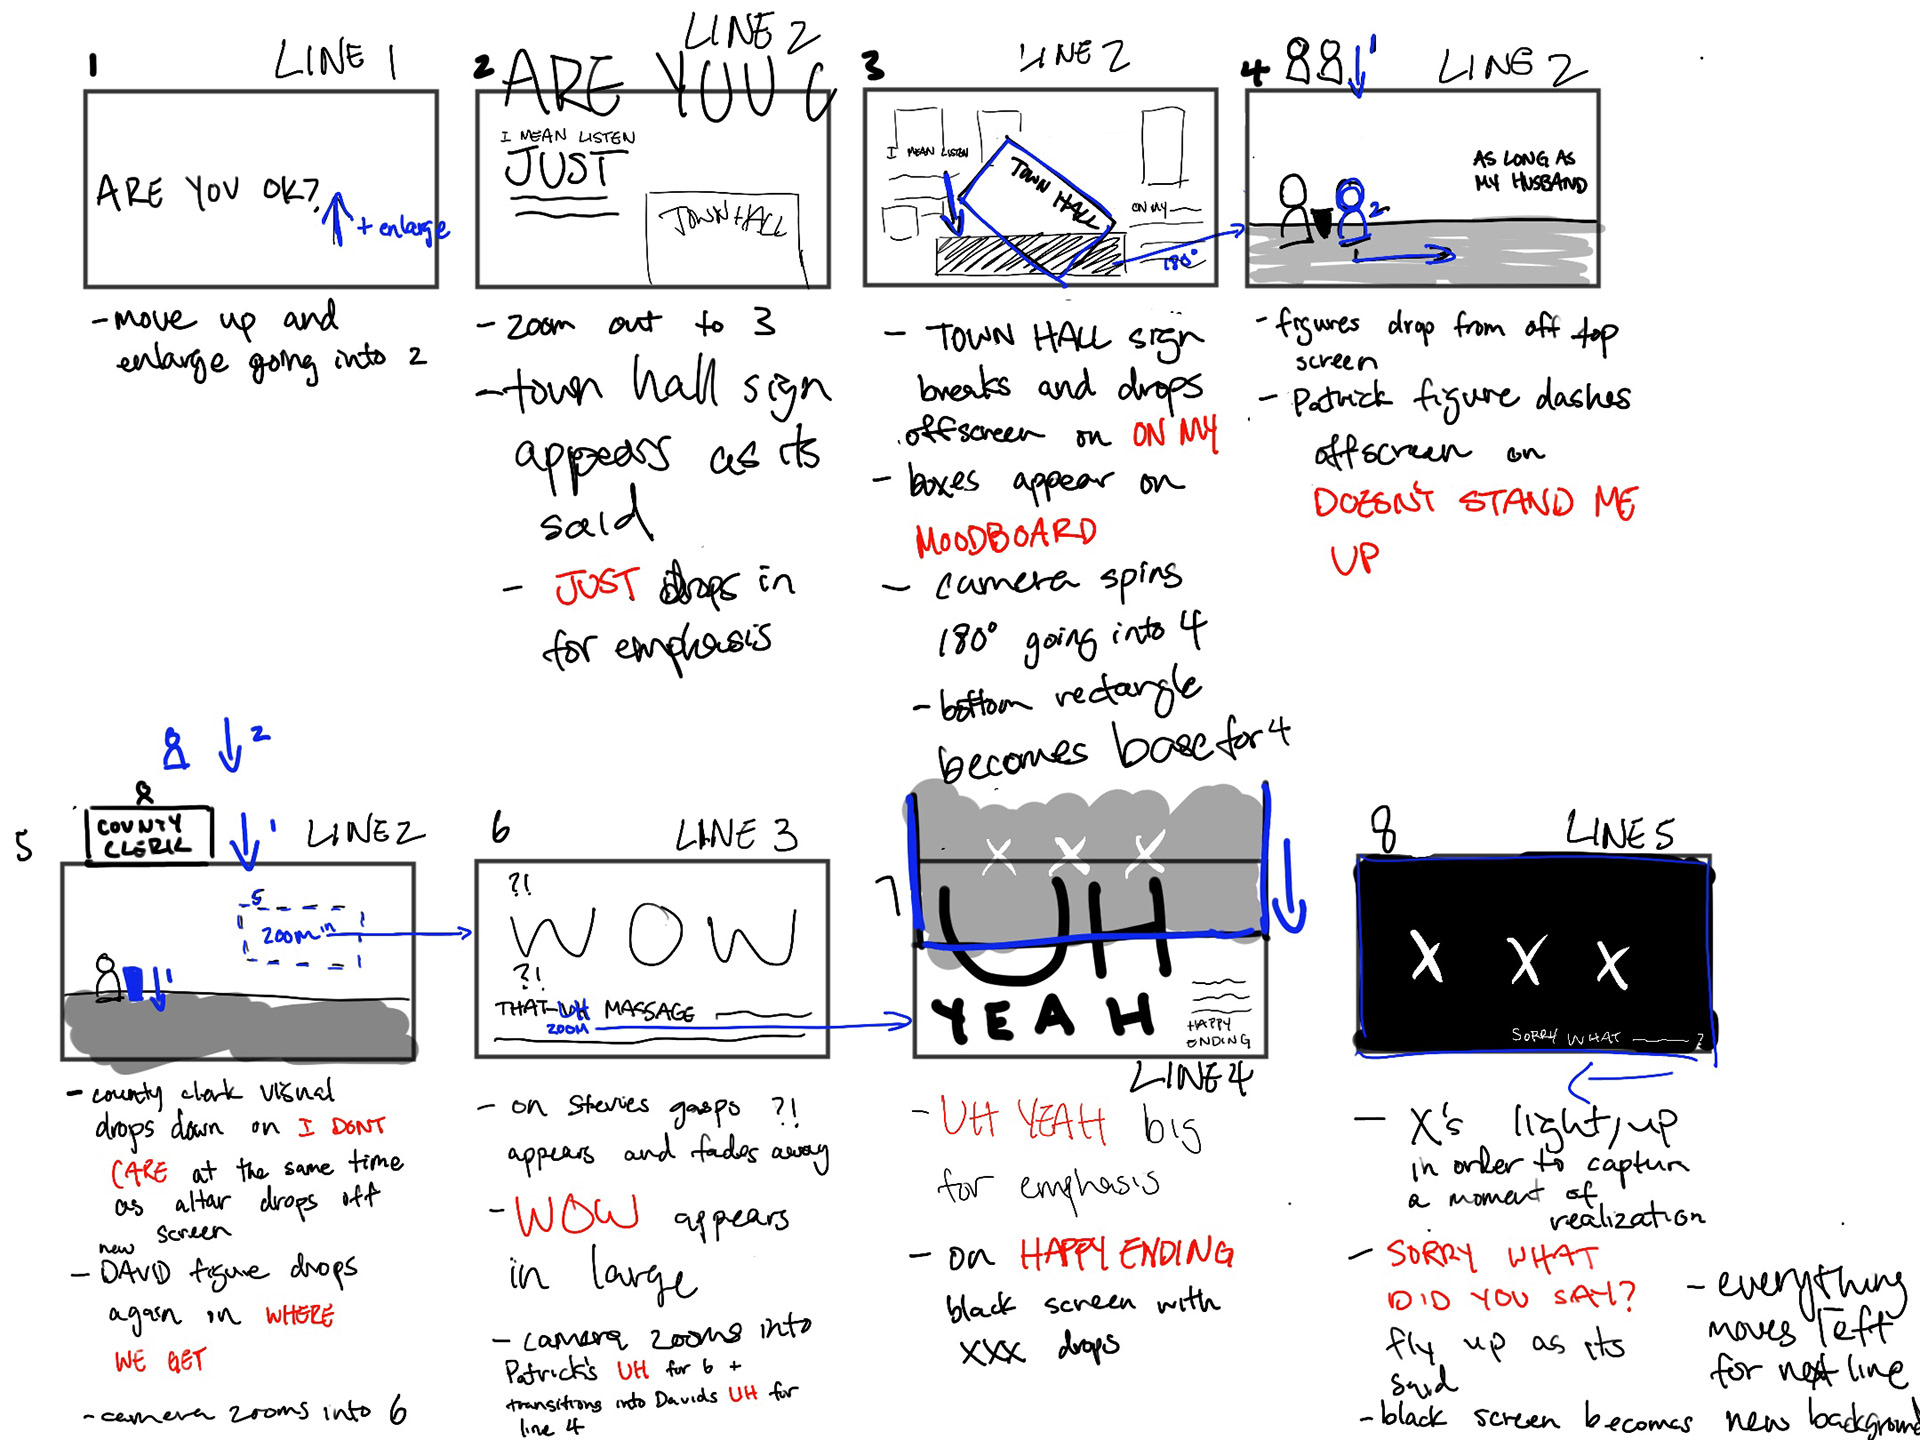 1
LINE 1
ARE YOU OK?
+ enlarge
- move up and
enlarge going into 2
2
LINE 2
ARE YOU O
I MEAN LISTEN
JUST
TOWN HALL
- zoom out to 3
- town hall sign
appears as its
said
- JUST drops in
for emphasis
3
LINE 2
I MEAN LISTEN
TOWN HALL
ON MY
180°
- TOWN HALL sign
breaks and drops
offscreen on ON MY
- boxes appear on
MOODBOARD
- camera spins
180° going into 4
- bottom rectangle
becomes base for 4
4
1
LINE 2
AS LONG AS
MY HUSBAND
2
- figures drop from off top
screen
- Patrick figure dashes
offscreen on
DOESN'T STAND ME
UP
5
2
COUNTY
CLERK
1
LINE 2
5
zoom in
1
- county clerk visual
drops down on I DONT
CARE at the same time
as altar drops off
screen
new
- DAVID figure drops
again on WHERE
WE GET
- camera zooms into 6
6
LINE 3
?!
WOW
?!
THAT UH MASSAGE
ZOOM
- on Stevies gasps ?!
appears and fades away
- WOW appears
in large
- camera zooms into
Patrick's UH for 6 +
transitions into Davids UH for
line 4
7
X X X
UH
YEAH
HAPPY
ENDING
LINE 4
- UH YEAH big
for emphasis
- on HAPPY ENDING
black screen with
XXX drops
8
LINE 5
X X X
SORRY WHAT ?
- X's light up
in order to capture
a moment of
realization
- SORRY WHAT
DID YOU SAY?
fly up as its
said
- black screen becomes new background
- everything
moves left
for next line